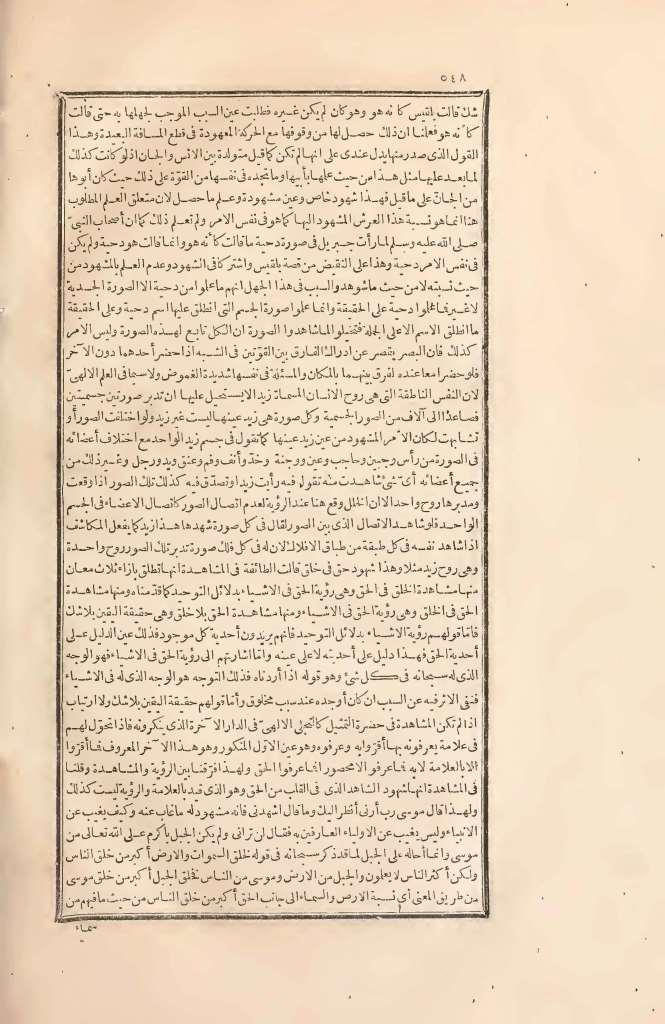 ٥٤٨
شك قالت بلقيس كأنه هو وهو كان لم يكن غيره فطلبت عين السبب الموجب لجهلها به حتى قالت
كأنه هو فعلنا ان ذلك حصل لها من وقوفها مع الحركة المعهودة فى قطع المسافة البعيدة وهذا
القول الذى صدر منها يدل عندى على انها لم تكن كما قيل متولدة بين الانس والجان اذ لو كانت كذلك
لما بعد عليها مثل هذا من حيث علمها بأبيها وما تجده فى نفسها من القوة على ذلك حيث كان أبوها
من الجان على ما قيل فهذا شهود خاص وعين مشهودة وعلم ما حصل لان متعلق العلم المطلوب
هنا انما هو نسبة هذا العرش المشهود اليها كما هو فى نفس الامر ولم تعلم ذلك كما ان أصحاب النبى
صلى الله عليه وسلم لما رأت جبريل فى صورة دحية ما قالت كأنه هو وانما قالت هو دحية ولم يكن
فى نفس الامر دحية وهذا على النقيض من قصة بلقيس واشتركا فى الشهود وعدم العلم بالمشهود من
حيث نسبته لا من حيث ما شوهد والسبب فى هذا الجهل انهم ما علموا من دحية الا الصورة الجسدية
لا غير فما علموا دحية على الحقيقة وانما علموا صورة الجسم التى انطلق عليها اسم دحية وعلى الحقيقة
ما انطلق الاسم الا على الجملة فتخيلوا لما شاهدوا الصورة ان الكل تابع لهذه الصورة وليس الامر
كذلك فان البصر يقصر عن ادراك الفارق بين القوتين فى الشبه اذا حضر أحدهما دون الآخر
فلو حضرا معا عنده لفرق بينهما بالمكان والمسئلة فى نفسها شديدة الغموض ولا سيما فى العلم الالهى
لان النفس الناطقة التى هى روح الانسان المسماة زيد الا يستحيل عليها ان تدبر صورتين جسميتين
فصاعدا الى آلاف من الصور الجسمية وكل صورة هى زيد عينها ليست غير زيد ولو اختلفت الصور أو
تشابهت لكان الامر المشهود من عين زيد عينها كما تقول فى جسم زيد الواحد مع اختلاف أعضائه
فى الصورة من رأس وجبين وحاجب وعين ووجنة وخد وأنف وفم وعنق ويد ورجل وغير ذلك من
جميع أعضائه أى شئ شاهدت منه تقول فيه رأيت زيدا وتصدق فيه كذلك تلك الصور اذا وقعت
ومدبرها روح واحد الا ان الخلل وقع هنا عند الرؤية لعدم اتصال الصور كاتصال الاعضاء فى الجسم
الواحد فلو شاهد الاتصال الذى بين الصور لقال فى كل صورة شهدها هذا زيد كما يفعل المكاشف
اذا شاهد نفسه فى كل طبقة من طباق الافلاك لان له فى كل فلك صورة تدبر تلك الصور روح واحدة
وهى روح زيد مثلا وهذا شهود حق فى خلق قالت الطائفة فى المشاهدة انها تطلق بازاء ثلاث معان
منها مشاهدة الخلق فى الحق وهى رؤية الحق فى الاشياء بدلائل التوحيد كما قدمناه ومنها مشاهدة
الحق فى الخلق وهى رؤية الحق فى الاشياء ومنها مشاهدة الحق بلا خلق وهى حقيقة اليقين بلا شك
فاما قولهم رؤية الاشياء بدلائل التوحيد فانهم يريدون أحدية كل موجود فذلك عين الدليل على
أحدية الحق فهذا دليل على أحديته لا على عينه واما اشارتهم الى رؤية الحق فى الاشياء فهو الوجه
الذى له سبحانه فى كل شئ وهو قوله اذا أردناه فذلك التوجه هو الوجه الذى له فى الاشياء
فنفى الاثر فيه عن السبب ان كان أوجده عند سبب مخلوق وأما قولهم حقيقة اليقين بلا شك ولا ارتياب
اذا لم تكن المشاهدة فى حضرة التمثيل كالتجلى الالهى فى الدار الآخرة الذى ينكرونه فاذا تحول لهم
فى علامة يعرفونه بها أقروا به وعرفوه وهو عين الاول المنكور وهو هذا الآخر المعروف فما أقروا
الا بالعلامة لا به فما عرفوا الا محصورا فما عرفوا الحق ولهذا فرقنا بين الرؤية والمشاهدة وقلنا
فى المشاهدة انها شهود الشاهد الذى فى القلب من الحق وهو الذى قيد بالعلامة والرؤية ليست كذلك
ولهذا قال موسى رب أرنى أنظر اليك وما قال اشهدنى فانه مشهود له ما غاب عنه وكيف يغيب عن
الانبياء وليس يغيب عن الاولياء العارفين به فقال لن ترانى ولم يكن الجبل باكرم على الله تعالى من
موسى وانما أحاله على الجبل لما قد ذكر سبحانه فى قوله لخلق السموات والارض أكبر من خلق الناس
ولكن أكثر الناس لا يعلمون والجبل من الارض وموسى من الناس فخلق الجبل أكبر من خلق موسى
من طريق المعنى أى نسبة الارض والسماء الى جانب الحق أكبر من خلق الناس من حيث ما فيهم من
سماء